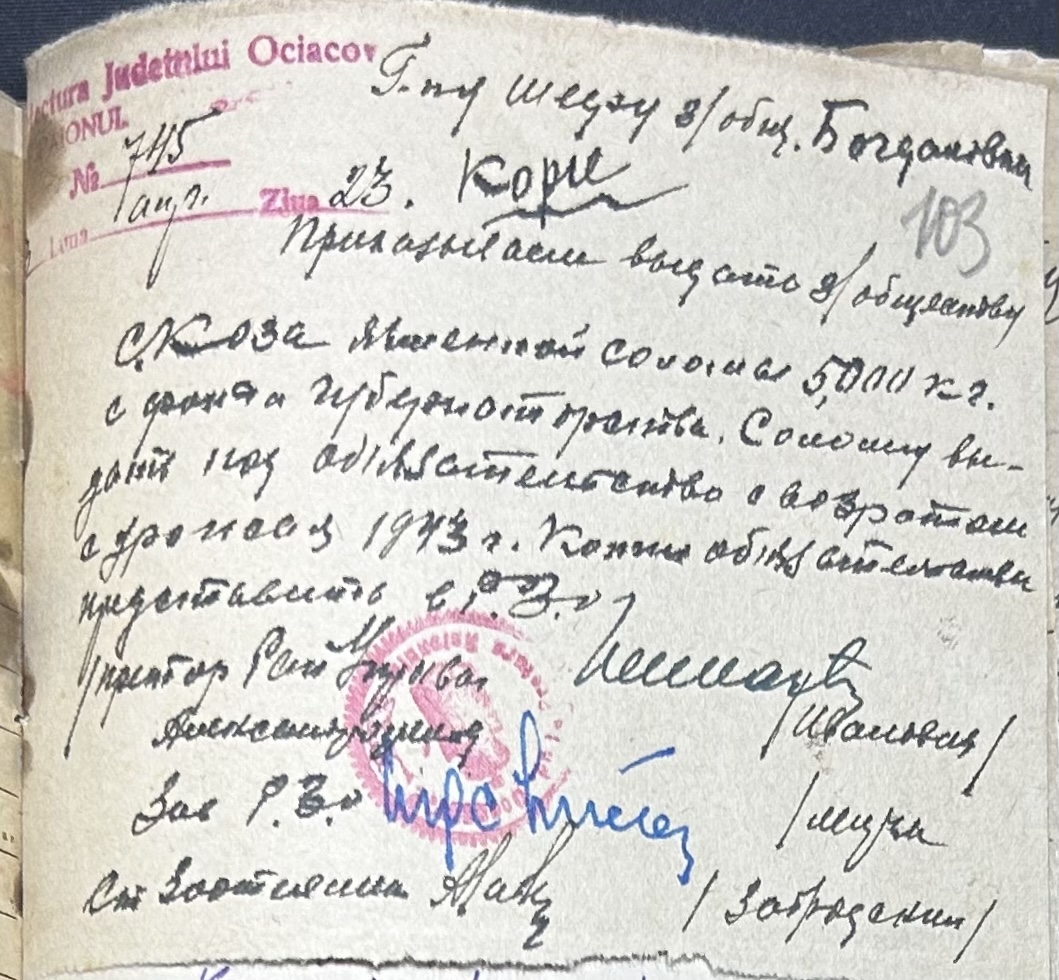 ectura Judetului Ociacov
RAIONUL
№ 745
Luna апр. Ziua 23.
Г-ну Шефу з/общ. Богдановки
Корш
103
Приказываем выдать з/обществу
с. Коза ячменной соломы 5,000 кг.
с фонда Губернаторства. Солому вы-
дать под обязательство с возвратом
с урожая 1943 г. Копию обязательства
представить в Р.З.О.
Претор Рай
Александрина
/Иванович/
Зав Р.З.О.
/Мерча
Ст Зоотехник
/Забродский/